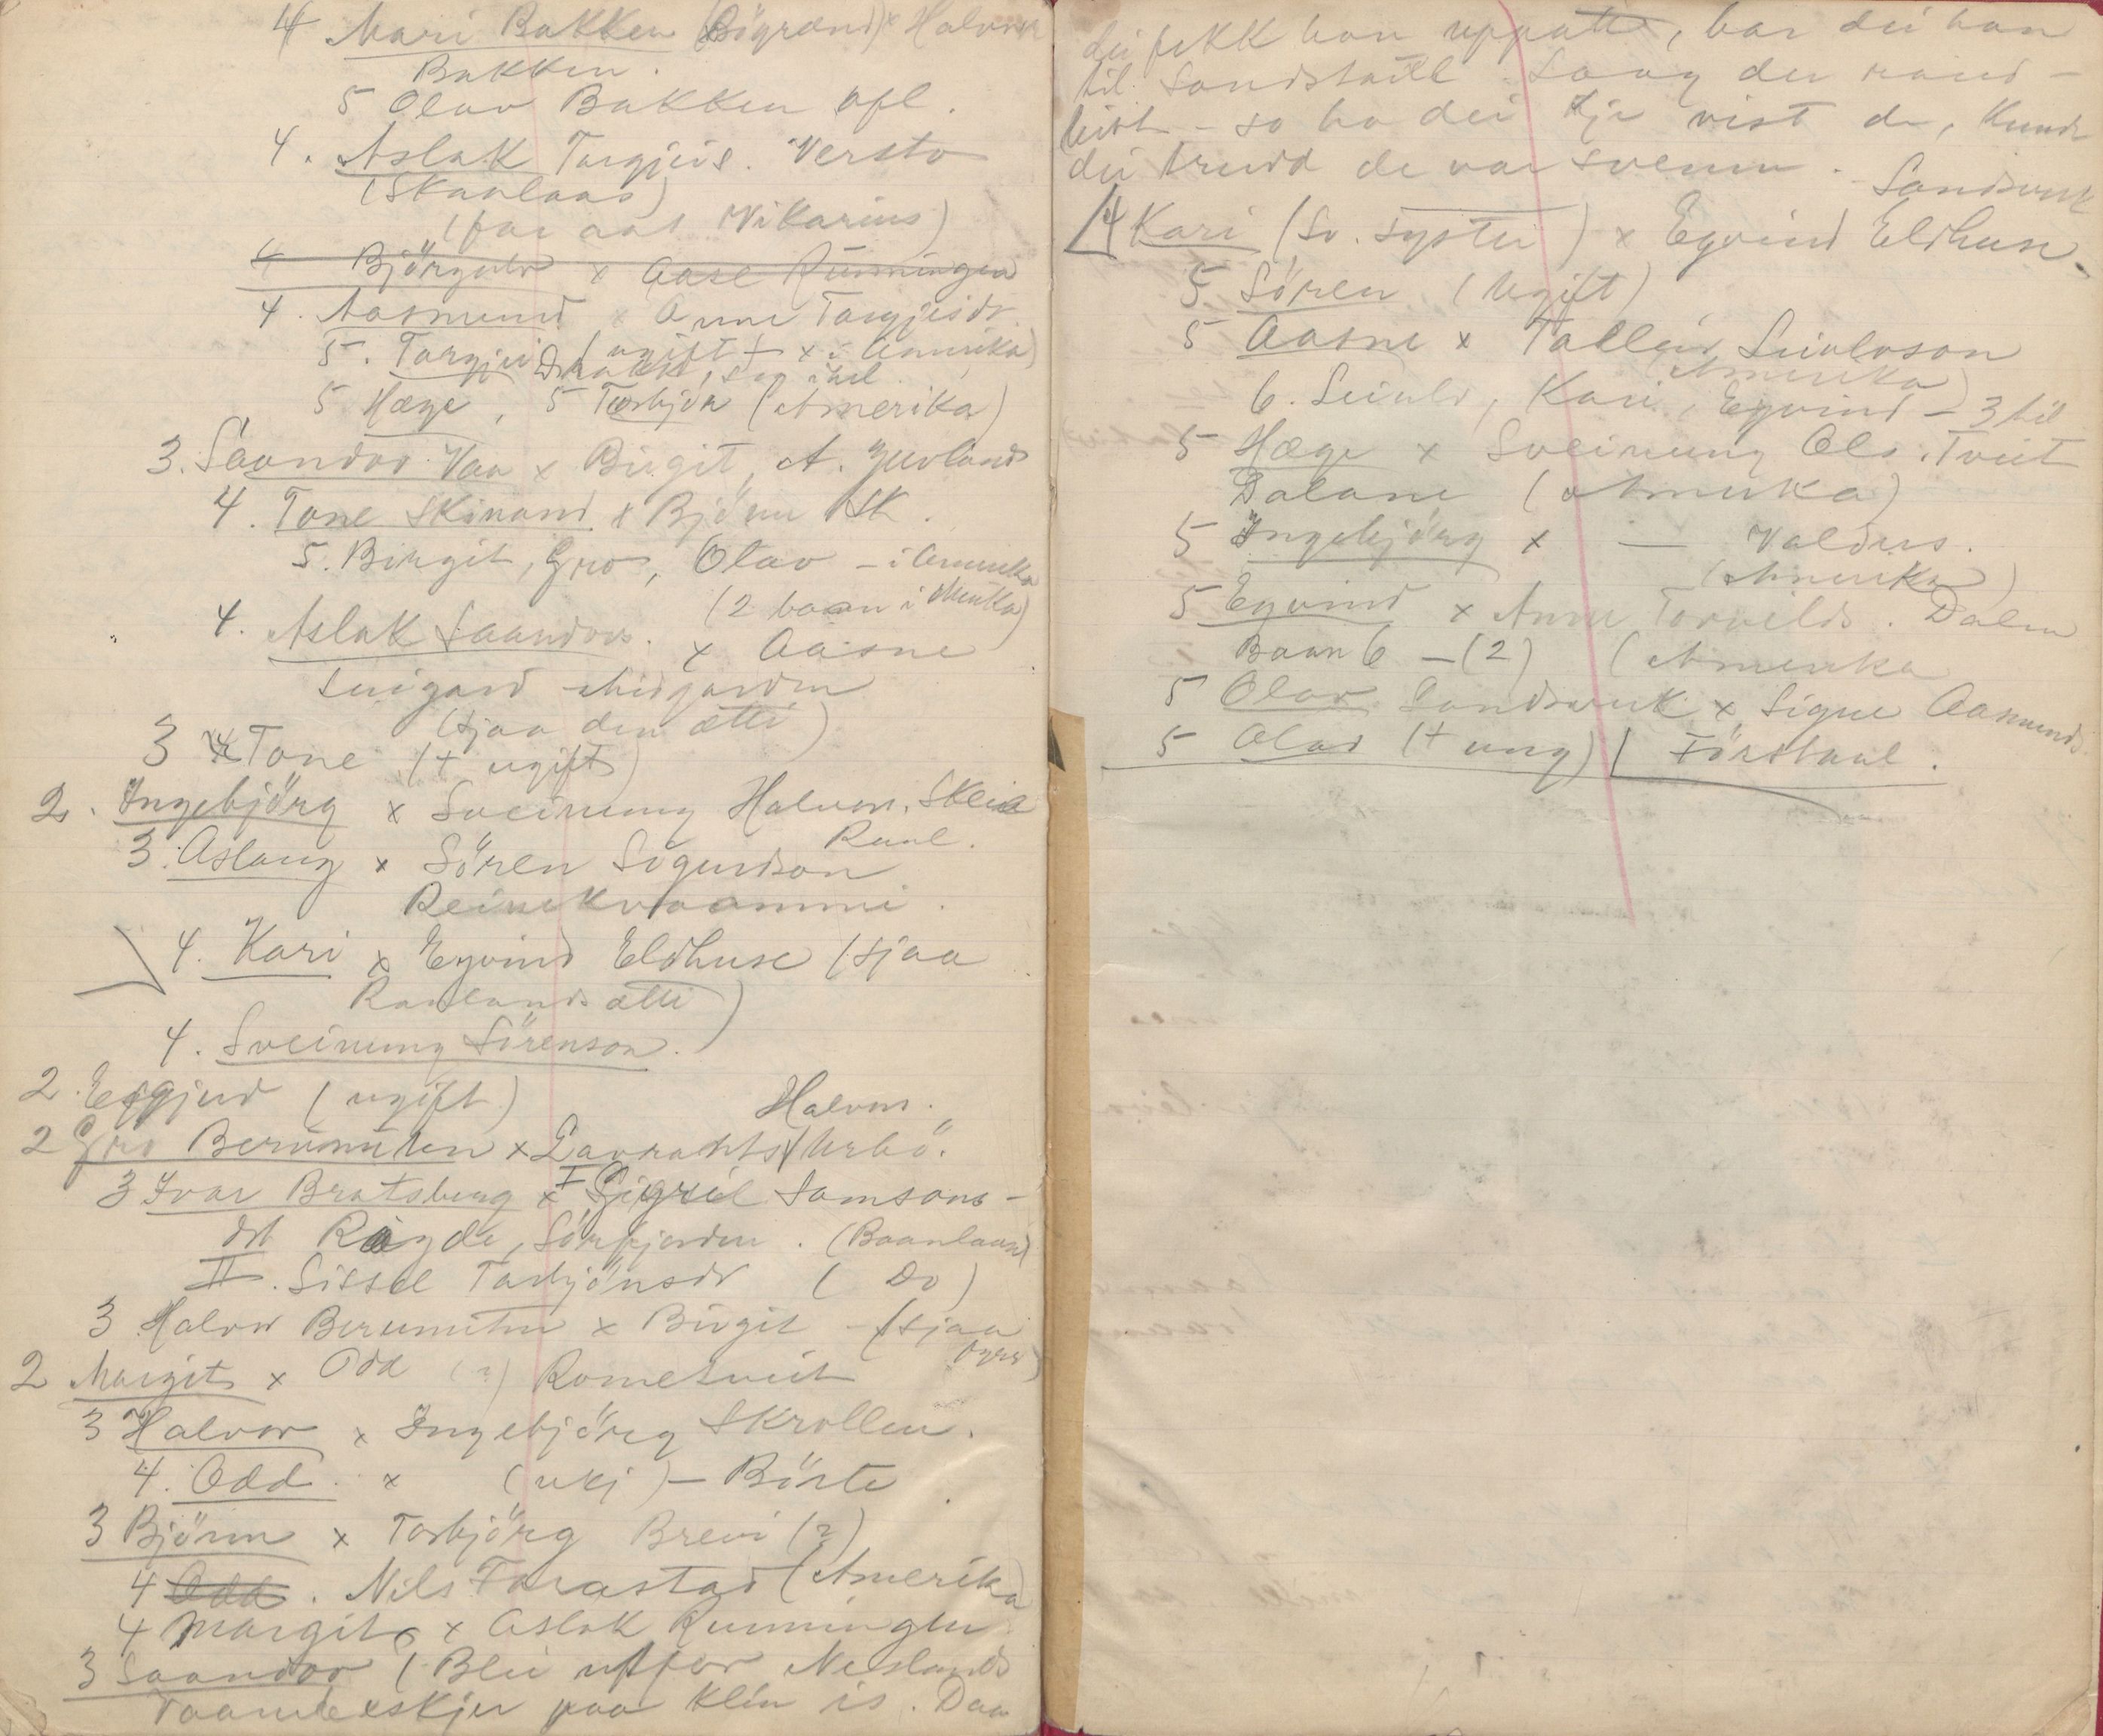 4 Mari Bakken (Bögrend) x Halvor
Bakken.
5 Olav Bakken ofl.
4. Aslak Targjeis. Versto
(Skaalaas)
(far aat Vikarius)
4 Björgulv x Aase Rünningen
4. Aasmund x Anne Targjeisdr.
5. Targjei (ugift + x i Amerika)
Drakst, seg ihel
5 Hæge, 5 Torbjön (Amerika)
3. Saandov Vaa x Birgit, A. Juvland
4. Tone Skinand x Björn Sk.
5. Birgit, Gro, Olav – i Amerika
(2 baan i Amerika)
4. Aslak Saandovs. x Aasne
Lurgard Midgarden
(sjaa den ætti)
3 Tone (+ ugift)
2. Ingebjörg x Sveinung Halvors. Skeie
Raul.
3. Aslaug x Sören Sigurdson
Reinekvaammi.
4. Kari x Eyvind Eldhuse (sjaa
Raulandsætti)
4. Sveinung Sörenson.
2. Ergjerd (ugift)
Halvors.
2 Gro Berunuten x Lavrants Urbö.
3 Ivar Bratsberg x I Sigrid Samsons-
dot Røyde, Sörfjorden. (Baanlaus)
II. Sissel Torbjönsdr (Do)
3 Halvor Berunuten x Birgit – (sjaa
fyrr)
2 Margit x Odd (?) Rometveit
3 Halvor x Ingebjörg Skrollen.
4. Odd. x (ukj) – Börte
3 Björn x Torbjörg Brevi (?)
4 Odd. Nils Farastad (Amerika
4 Margit x Aslak Runningen
3 Saandov (Blei utfor Neslands
vaandeeskjer paa klin is. Daa
dei fekk han uppatte, bar dei han
til Sandstaul. Saag der raud-
leitt – so ha dei kje vist de, kunde
dei truid de var svevn.
Sandsvik
4 Kari (Sv. syster) x Eyvind Eldhuse.
5 Sören (Ugift)
5 Aasne x Talleiv Leivlvson
(Amerika)
6. Leivlv, Kari, Eyvind – 3 til
5 Hæge x Sveinung Ols. Tveit
Dalane (Amerika)
5 Ingebjörg x — Valdres.
(Amerika)
5 Eyvind x Anne Torvilds. Dalen
Baan 6 – (2) (Amerika
5 Olav Sandsvik x Signe Aasmunds.
5 Olav (+ ung) | Förstaul.